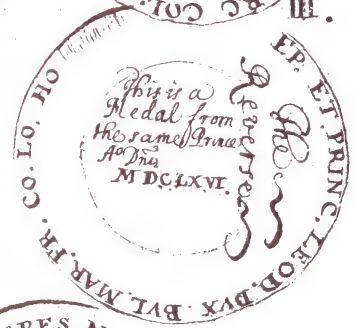 & C. COL.
III.
EP. ET PRINC. LEOD. DVX. BVL. MAR. FR. CO. LO. HO
This is a
Medal from
the same Prince
Ao Dni
M DC LXVI.
The
Reverse